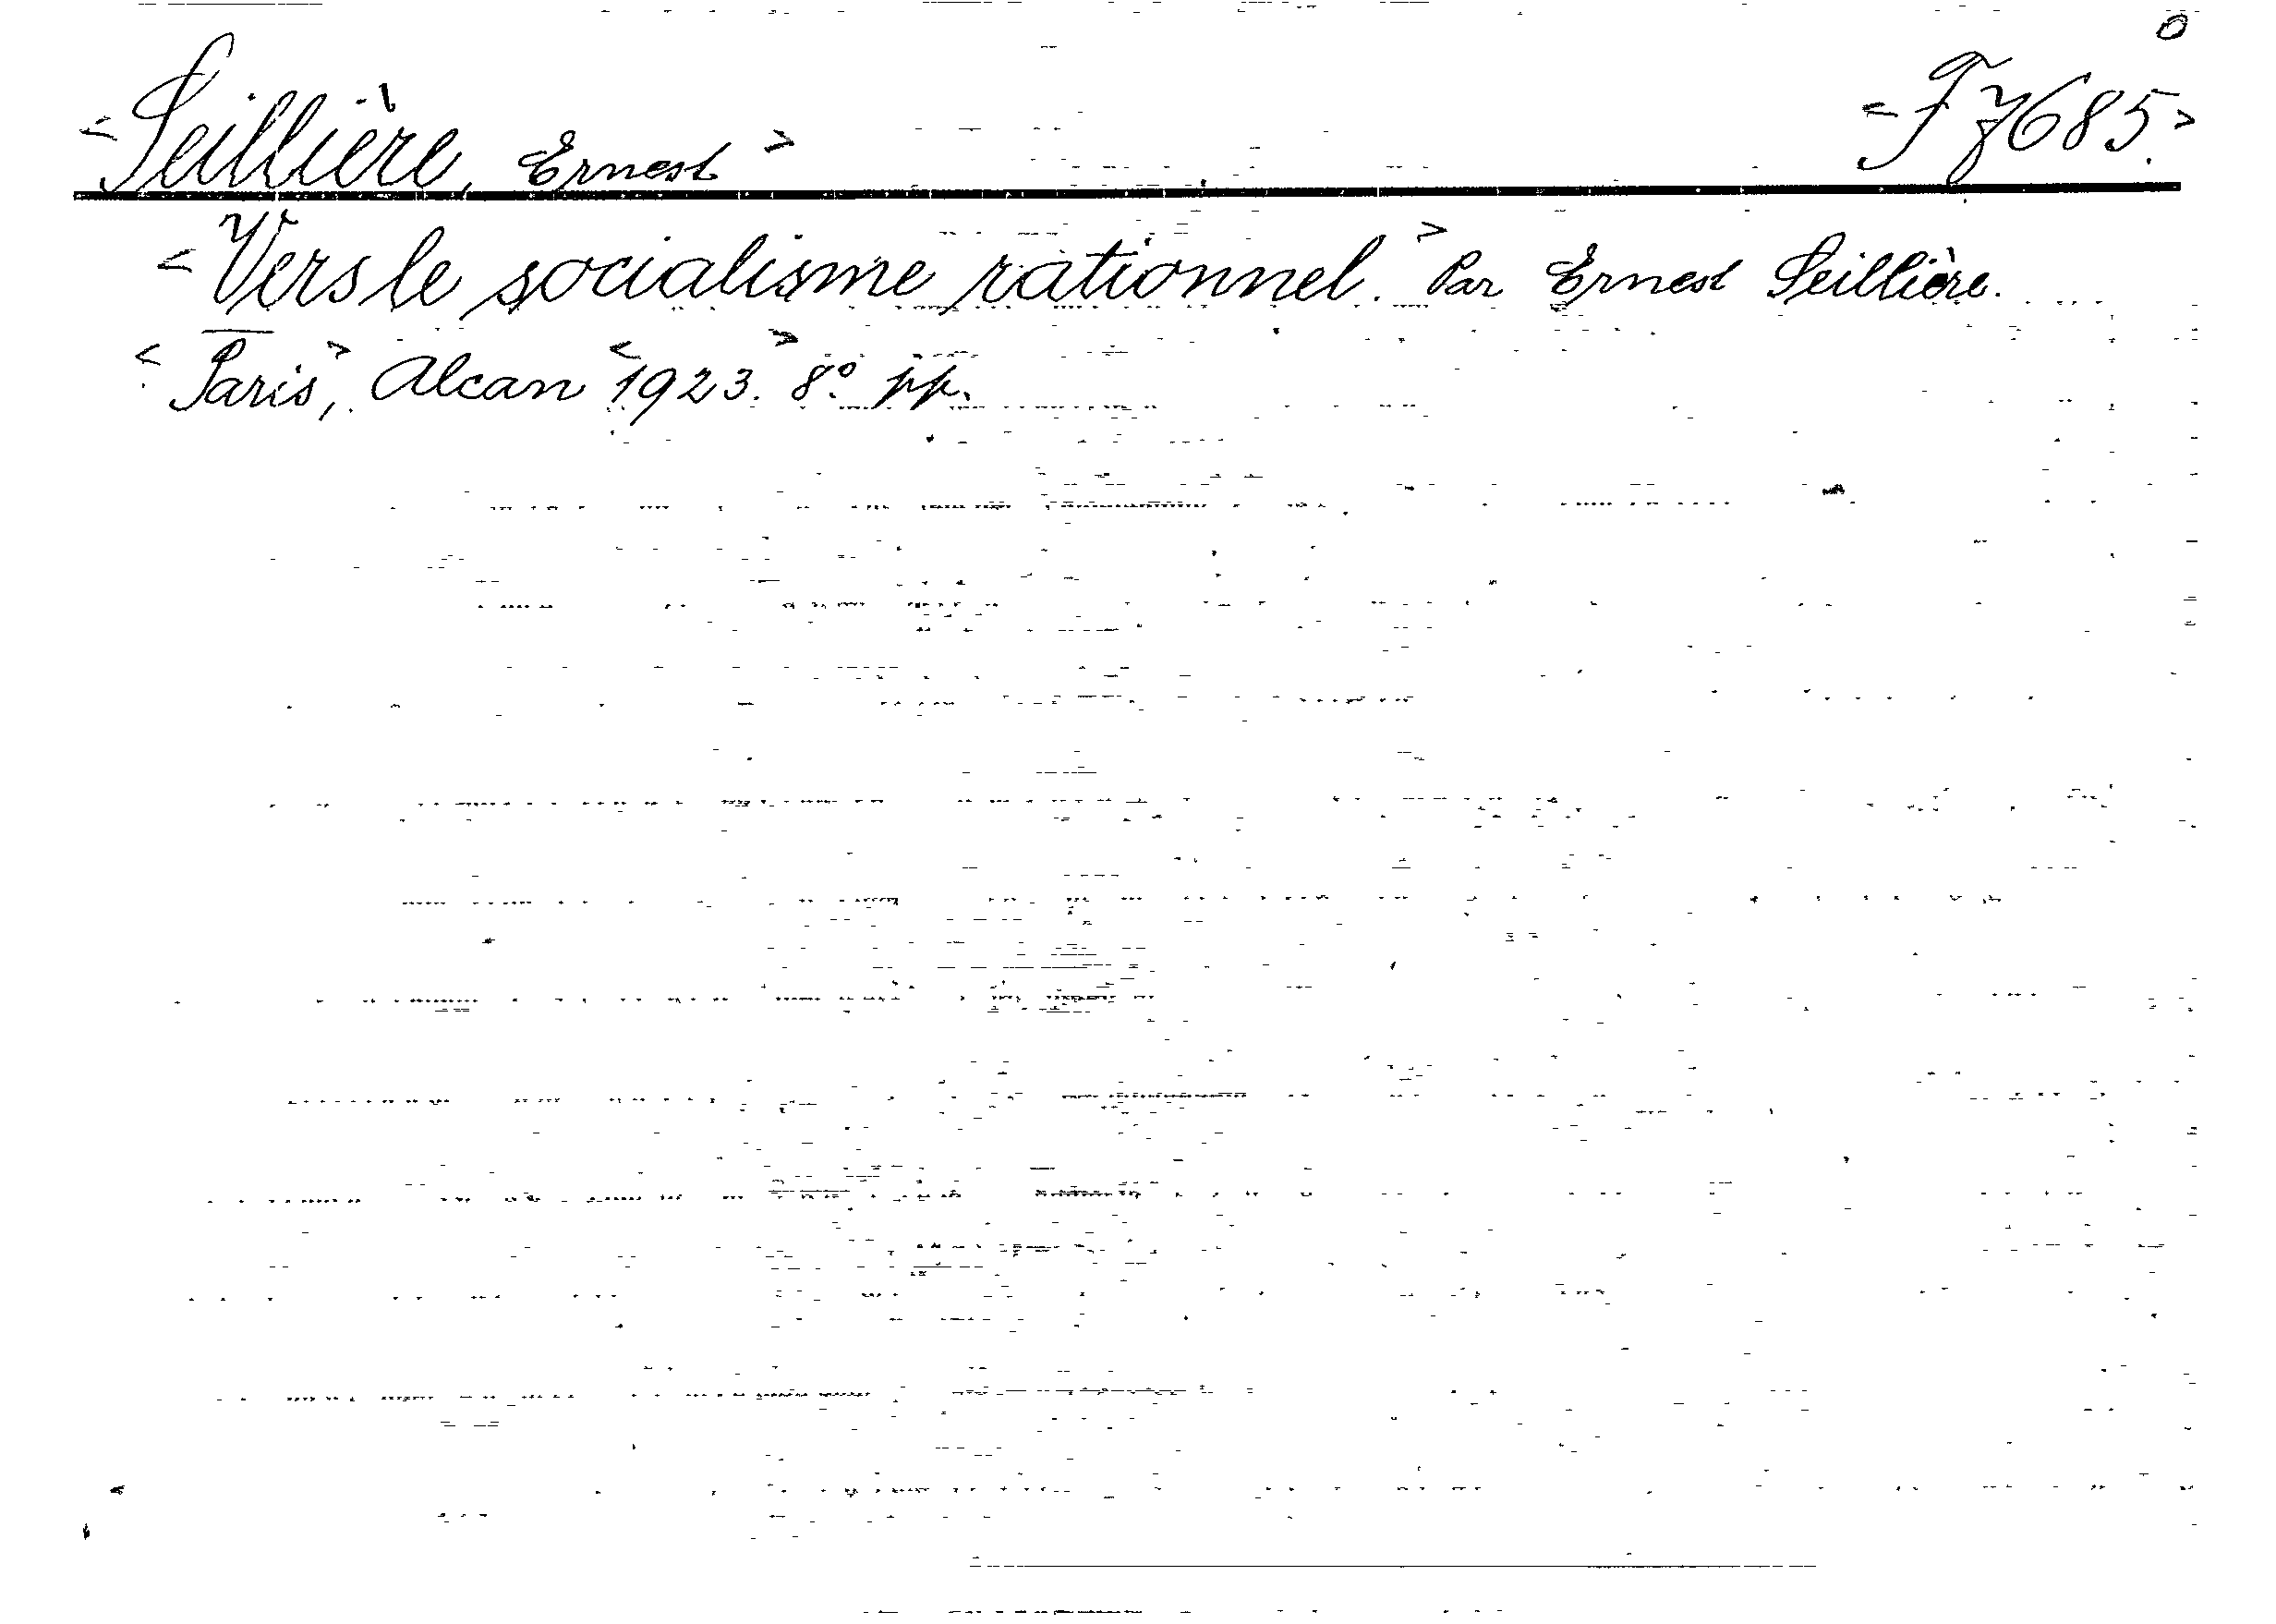 <Seillière, Ernest> <F 7685.>
<Vers le socialisme rationnel.> Par Ernest Seillière.
<Paris>, Alcan <1923.> 8° pp.